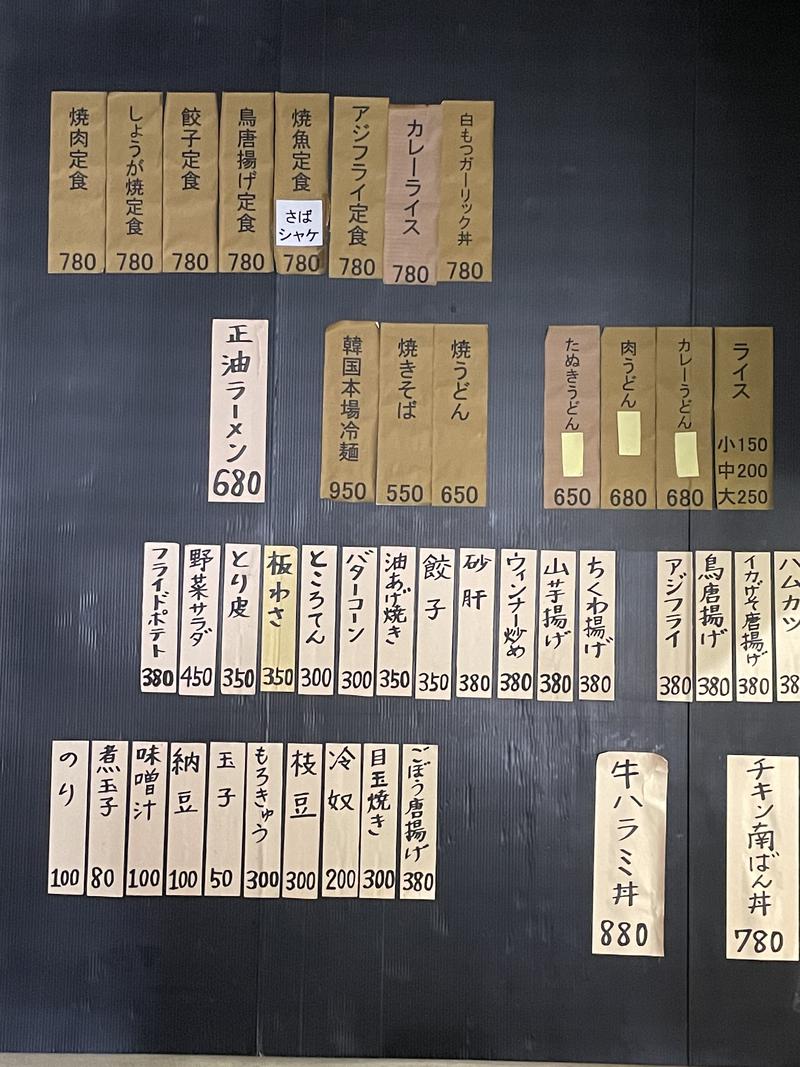 焼肉定食 780
しょうが焼定食 780
餃子定食 780
鳥唐揚げ定食 780
焼魚定食 さば シャケ 780
アジフライ定食 780
カレーライス 780
白もつガーリック丼 780
正油ラーメン 680
韓国本場冷麺 950
焼きそば 550
焼うどん 650
たぬきうどん 650
肉うどん 680
カレーうどん 680
ライス 小150 中200 大250
フライドポテト 380
野菜サラダ 450
とり皮 350
板わさ 350
ところてん 300
バターコーン 300
油あげ焼き 350
餃子 350
砂肝 380
ウィンナー炒め 380
山芋揚げ 380
ちくわ揚げ 380
アジフライ 380
鳥唐揚げ 380
イカげそ唐揚げ 380
ハムカツ 38
のり 100
煮玉子 80
味噌汁 100
納豆 100
玉子 50
もろきゅう 300
枝豆 300
冷奴 200
目玉焼き 300
ごぼう唐揚げ 380
牛ハラミ丼 880
チキン南ばん丼 780